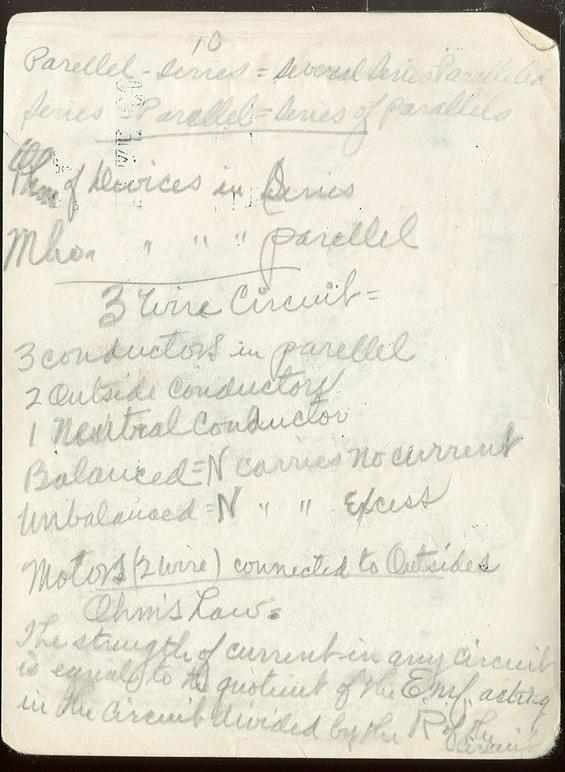 10
Parellel - Series = Several Series Paralleled
Series - Parallel = Series of parallels
of Devices in Series
Mho " " " parellel
3 Wire Circuit =
3 conductors in parellel
2 Outside Conductors
1 Neutral Conductor
Balanced = N carries no current
Unbalanced = N " " Excess
Motors (2 wire) connected to Outsides
Ohm's Law.
The strength of current in any circuit
is equal to the quotient of the E.m.f. acting
in the Circuit divided by the R of the
Circuit